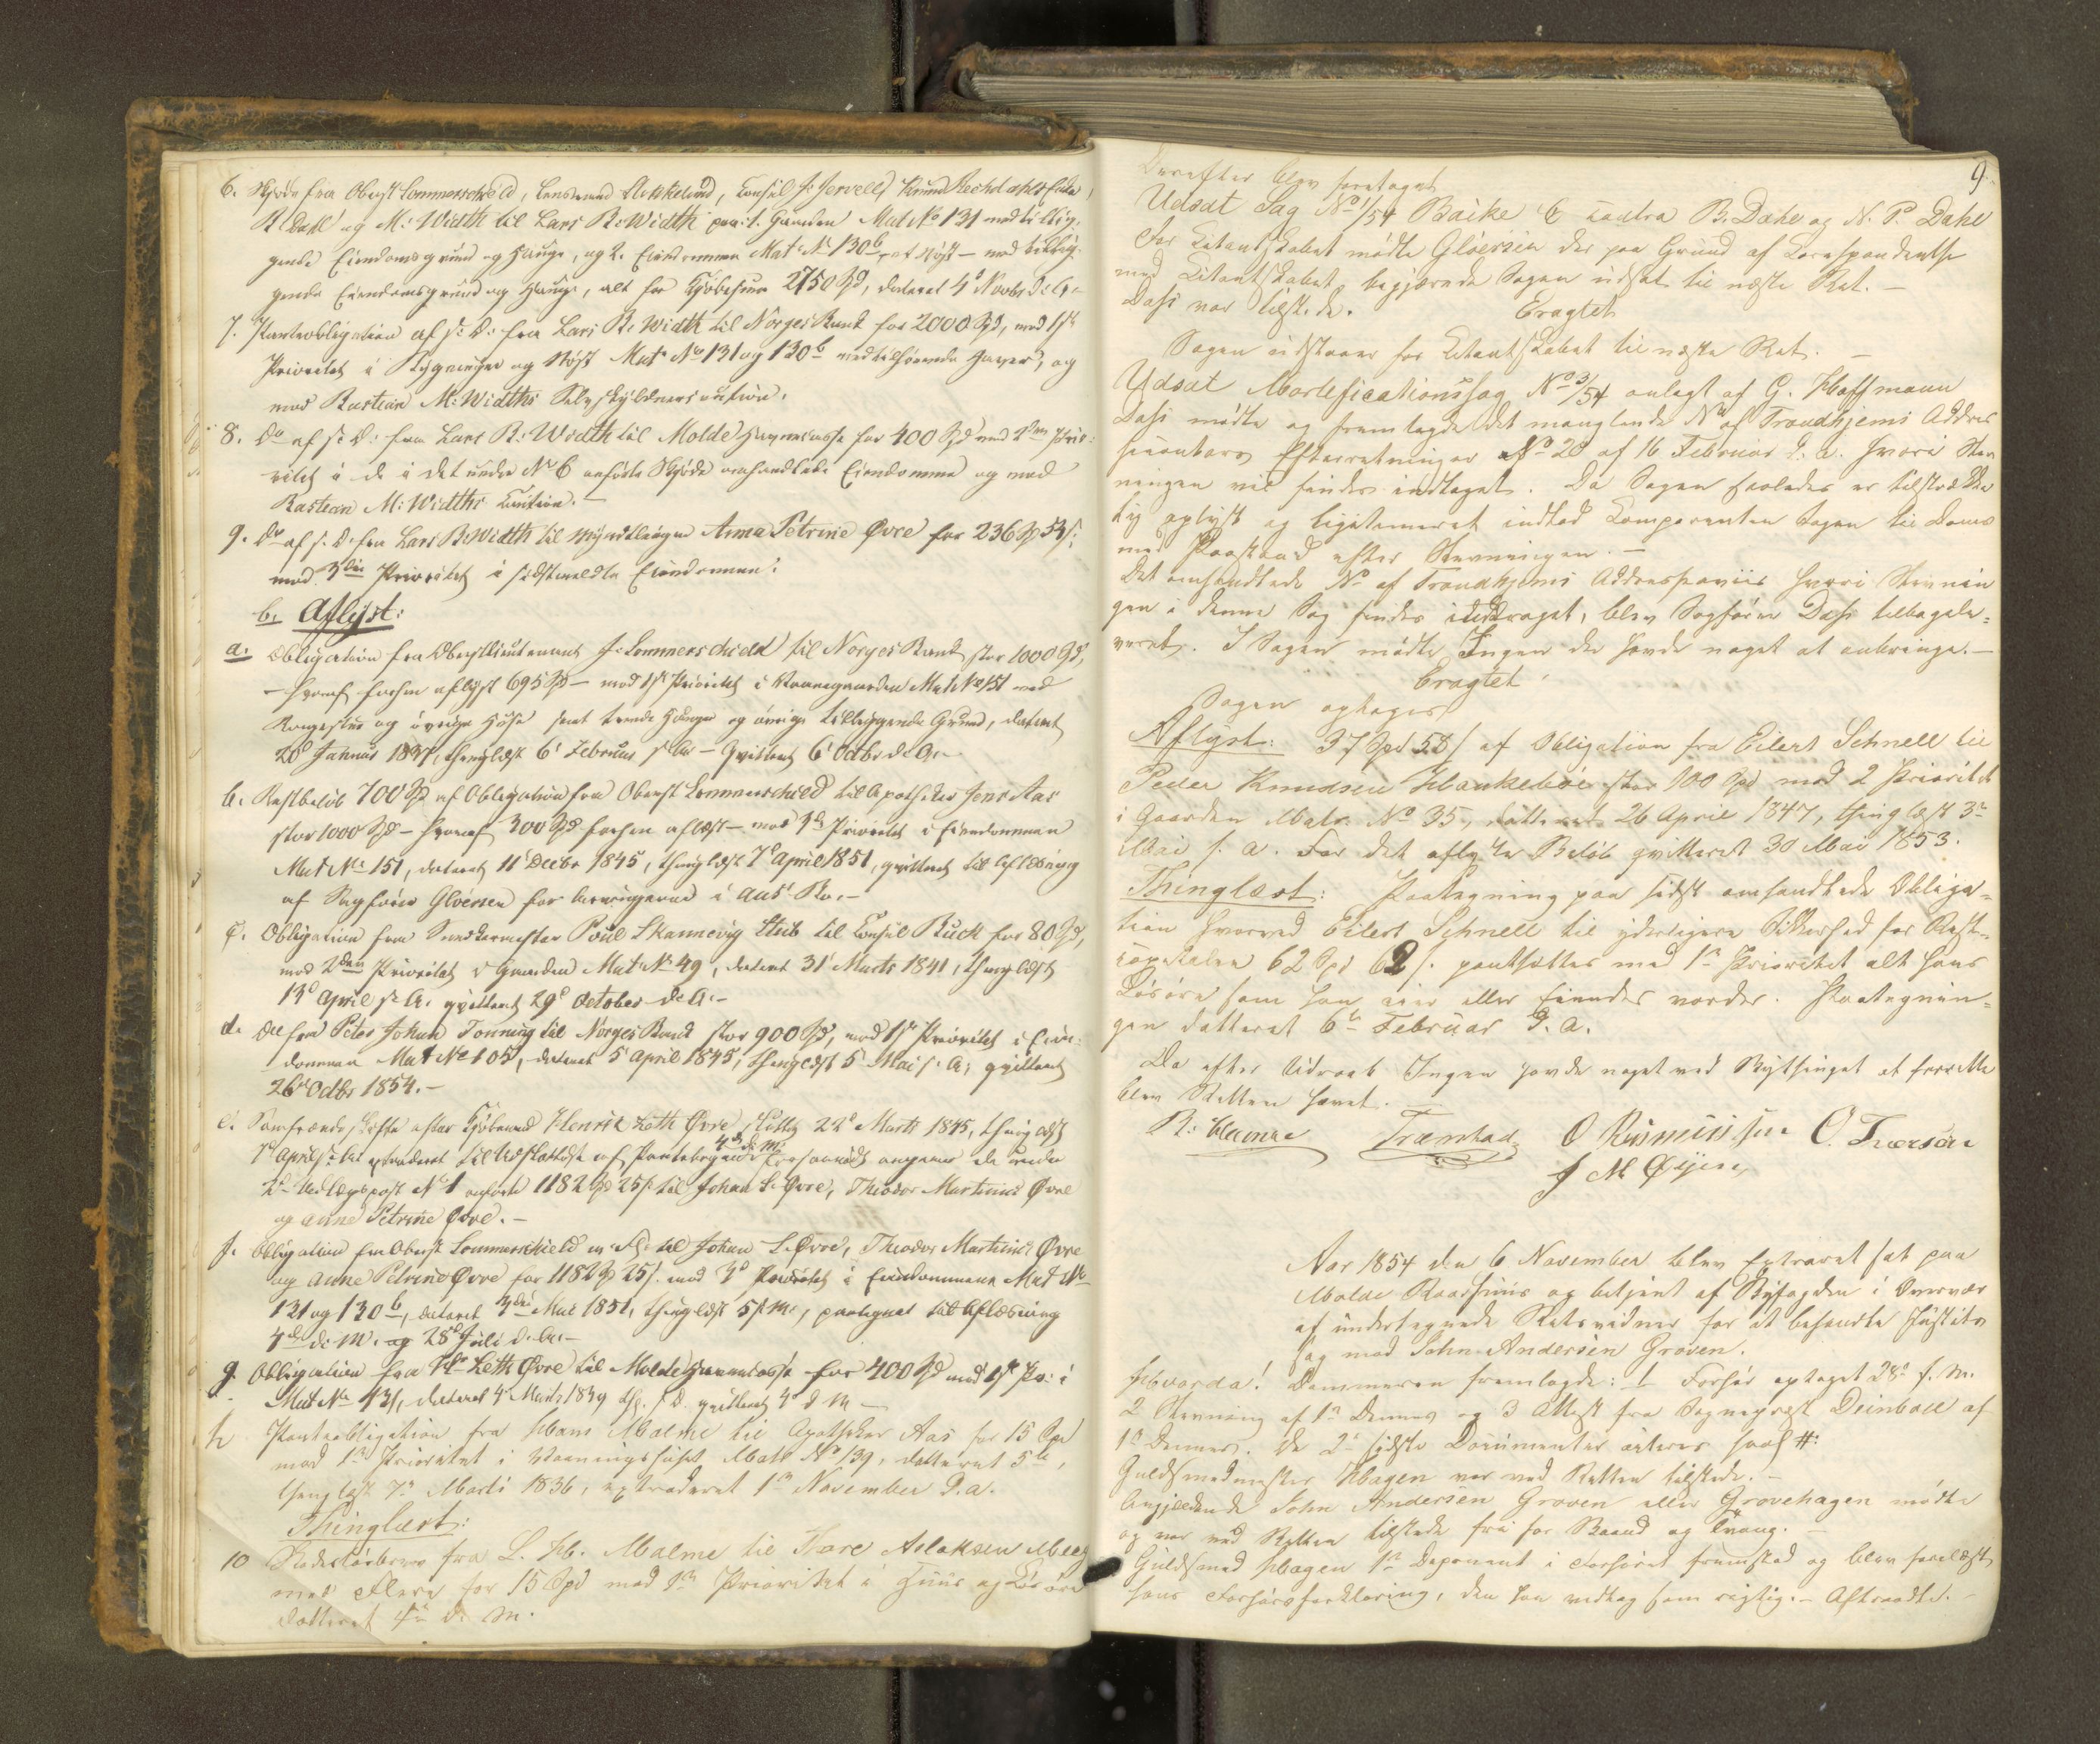 6. Skjøde fra Oberst Sommerschield, Lensmand Aukkelund, Consul J. Jervell, Knud Rechdahls
R. Dahl og M: Width til Lars R. Width paa: 1. Gaarden Mat No 131 med tillig-
gende Eiendomsgrund og Hauge, og 2. Eiendommen Mat: No 130b med tillig-
gende Eiendomsgrund og Hauge, alt for Kjøbesum 2750 Spd, dateret 4d Novbr d. A.
7. Panteobligation af s: D: fra Lars R. Width til Norges Bank for 2000 Spd, med 1ste
Prioritet i Bygninger og Mat No 131 og 130b med tilhørende Haver, og
med Bastian M: Widths Selvskyldnercaution.
8. Do af s: D: fra Lars R: Width til Molde Havnecasse for 400 Spd med 2den Prio-
ritet i de i det under No 6 anførte Skjøde omhandlede Eiendomme og med
Bastian M: Widths Caution.
9. Do af s. D. fra Lars R. Width til Myndtlingen Anna Petrine Øvre for 236 Spd 54 s;
med 3die Prioritet i sidstmeldte Eiendomme.
b. Aflyst:
a. Obligation fra Oberstlieutenant J. Sommerschield til Norges Bank stor 1000 Spd,
- hvoraf forhen aflyst 695 Spd - med 1ste Prioritet i Vaanegaarden Mat. No 151 med
og øvrige Huse samt tvende Hauger og øvrige tilliggende Grund, dateret
20d Januar 1837, thinglæst 6t Februar s. A. - Qvitteret 6t Octbr d. A.
b. Restbeløb 700 Spd af Obligation fra Oberst Sommerschield til Apotheker Jens Aas
stor 1000 Spd - hvoraf 300 Spd forhen aflæst - med Prioritet i Eiendommen
Mat No 151, dateret 11t Decbr 1845, thinglæst 7d April 1851, qvitteret til Aflæsning
af Sagfører Gløersen for
c. Obligation fra Snedkermester Poul Skannevig Stub til Consul Buck for 80 Spd,
med 2den Prioritet i Gaarden Mat: No 49, dateret 31t Marts 1841, thinglæst
13d April s. A. qvitteret 29d October d. A.
d. Do fra Peter Johan Tonning til Norges Bank stor 900 Spd, med 1ste Prioritet i Eien-
dommen Mat No 105, dateret 5 April 1845, thinglæst 5 Mai s. A., qvitteret
26de Octbr 1854.
e. Samfrændeskifte efter Kjøbmand Henrik Leth Øvre sluttet 22d Marts 1845, thinglæst
7d April s. A. extraderet til Udslettelse af Pantebogen 4d d. M. forsaavidt angaaer de under
Udlægspost No 1 anførte 1182 Spd 25 s. til Johan L. Øvre, Theodor Martinus Øvre
og Anne Petrine Øvre.
f. Obligation fra Oberst Sommerschield til Johan L. Øvre, Theodor Martinus Øvre
og Anne Petrine Øvre for 1182 Spd 25 s. med Prioritet i Eiendommene Mat No
131 og 130b, dateret 3die Mai 1851, thinglæst 5 s. M., paategnet til Aflæsning
4d d. M. og 28d Juli d. A.
g. Obligation fra Leth Øvre til Molde Havnecasse for 400 Spd med 1ste Pr: i
Mat No 131, dateret 4 Marts 1839 thgl. s. D. qvitteret 4d d M
h Panteobligation fra Hans Malme til Apotheker Aas for 15 Spd
med 1ste Prioritet i Vaaningshuset Matr No 139, datteret 5te,
thinglæst 7de Marti 1836, extraderet 1ste November d. a.
Thinglæst:
10 fra L. H. Malme til Tore Aslaksen
med Flere for 15 Spd med 1ste Prioritet i Huus og Løsøre
datteret d. M.
9.
Derefter blev foretaget
Udsat Sag No 1/54 Bakke & contra B. Dahl og N. P. Dahl
For Citantskabet mødte Gløersen der paa Grund af Correspondentse
med Citantskabet begjærede Sagen udsat til næste Ret. -
Dass var tilstede. Eragtet
Sagen udstaaer for Citantskabet til næste Ret. -
Udsat Mortificationssag No 3/54 anlagt af G. Hoffmann
Dass mødte og fremlagde det manglende No af Trondhjems Addres
secontoirs Efterretninger No 20 af 16 Februar d. a. hvori Stev
ningen vil findes indtaget. Da Sagen saaledes er tilstrække
lig oplyst og legitimeret indlod Comparenten Sagen til Doms
med Paastand efter Stevningen. -
Det omhandlede No af Trondhjems Addresseavis hvori Stevnin
gen i denne Sag findes inddraget, blev Sagfører Dass tilbagele-
veret. I Sagen mødte Ingen der havde noget at anbringe. -
Eragtet
Sagen optages
Aflyst: 37 Spd 58 s af Obligation fra Eilert Schnell til
Peder Knudsen Haukebøe stor 100 Spd med 2 Prioritet
i Gaarden Matr. No 35, datteret 26 April 1847, thinglæst 3de
Mai s. a. For det aflyste Beløb qvitteret 30 Mai 1853.
Thinglæst: Paategning paa sidst omhandlede Obliga-
tion hvorved Eilert Schnell til yderligere Sikkerhed for Rest-
capitalen 62 Spd 62 s. pantsætter med 1ste Prioritet alt hans
Løsøre som han eier eller eiendes vorder. Paategnin-
gen datteret 6te Februar d. a.
Da efter Udraab Ingen havde noget ved Bythinget at forrette
blev Retten hævet. -
O Rasmussen O. Iversen
J M Øyen
Aar 1854 den 6 November blev Extraret sat paa
Molde Raadhuus og betjent af Byfogden i Overvær
af undertegnede Retsvidner for at behandle Justits
sag mod John Andersen Groven.
Hvorda! Dommeren fremlagde: 1 Forhør optaget 28de f. m.
2 Stevning af 1ste Dennes og 3 Attest fra Sogneprest Deinboll af
1ste Dennes. De 2de sidste Documenter acteres saal #:
Guldsmedmester Hagen var ved Retten tilstede. -
Angjeldende John Andersen Groven eller Grovehagen mødte
og var ved Retten tilstede fri for Baand og Tvang. -
Guldsmed Hagen 1ste Deponent i Forhøret fremstod og blev forelæst
hans Forhørsforklaring, den han vedtog som rigtig. - Aftraadte. -